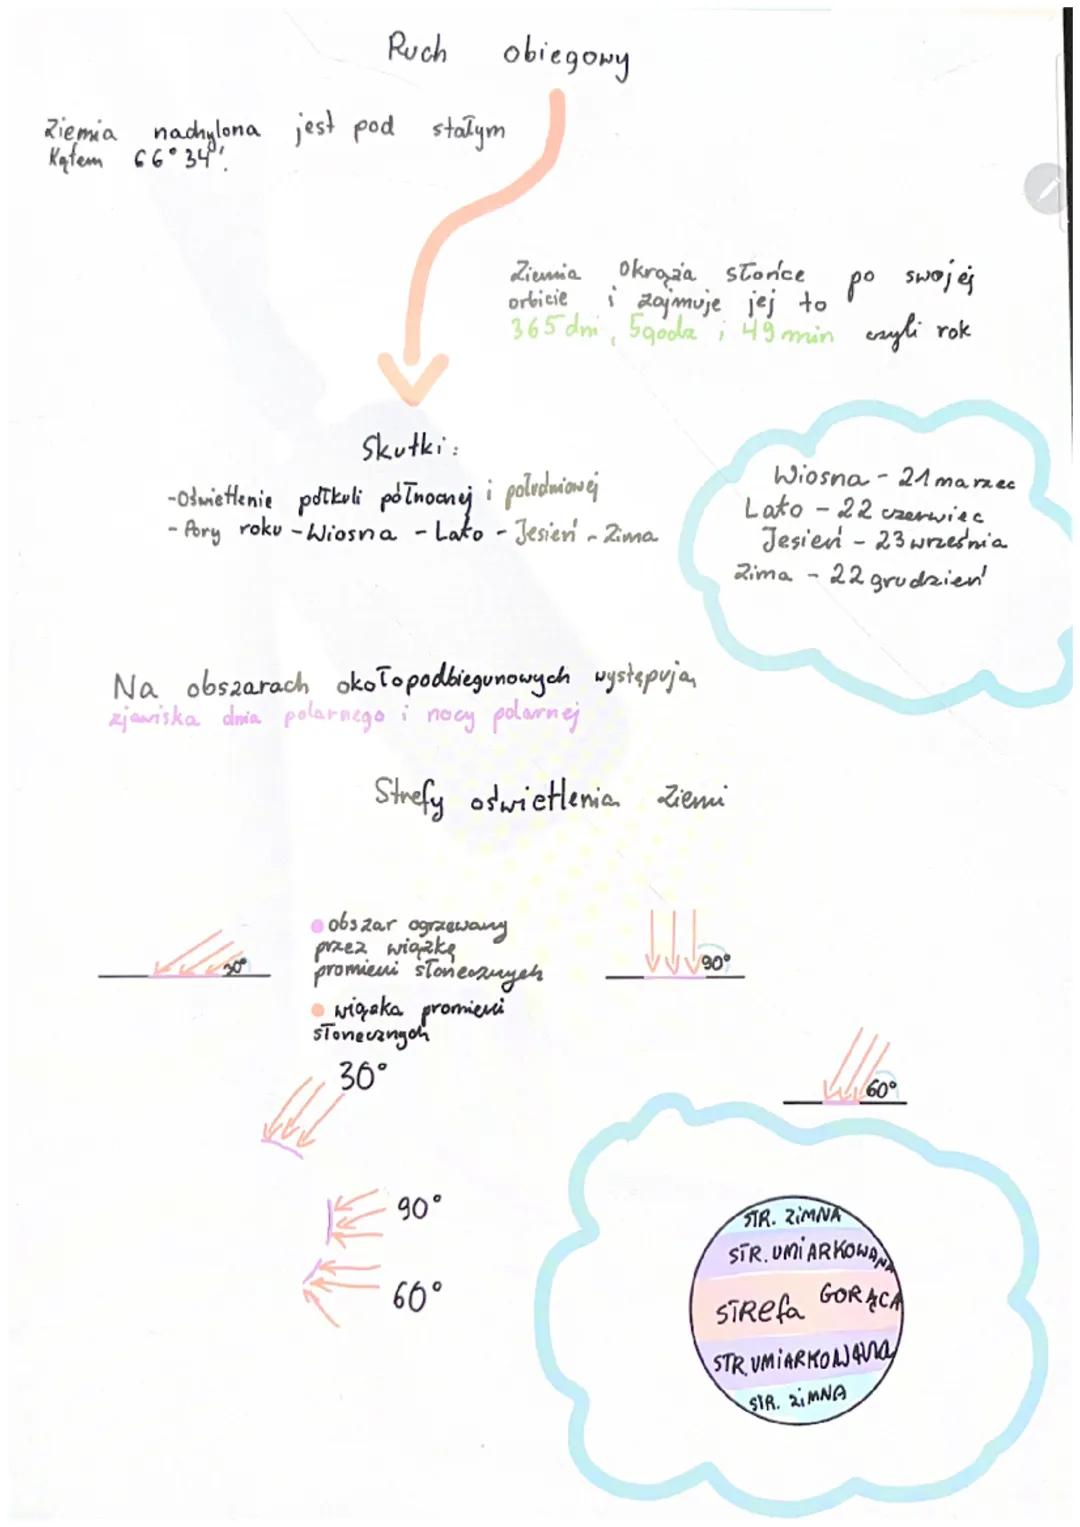 Ruch obiegowy
Ziemia nachylona jest pod stałym
Kątem 66°34'.
Ziemia Okrąża słońce po swojej
orbicie i zajmuje jej to
365 dni, 5godz i 49 min czyli rok
Skutki:
-Oświetlenie półkuli północnej i południowej
- Pory roku - Wiosna - Lato - Jesień - Zima
Wiosna - 21 marzec
Lato - 22 czerwiec
Jesień - 23 września
Zima - 22 grudzień
Na obszarach okołopodbiegunowych występują
zjawiska dnia polarnego i nocy polarnej
Strefy oświetlenia Ziemi
obszar ogrzewany
przez wiązkę
promieni słonecznych
wiązka promieni
słonecznych
30°
90°
60°
30°
90°
60°
STR. ZIMNA
STR. UMIARKOWANA
STREfa GORĄCA
STR. UMIARKOWANA
STR. ZIMNA